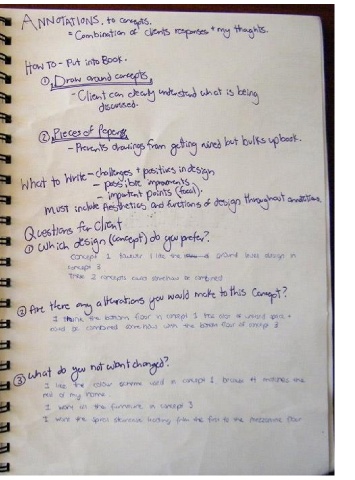 ANNOTATIONS, to concepts.
* Combination of clients responses + my thoughts.
HOW TO - Put into Book.
① Draw around concepts,
- Client can clearly understand what is being
discussed.
② Pieces of Paper
- Prevents drawings from getting ruined but bulks up book.
What to Write - challenges + positives in design
- possible improvements
- important points (focal).
Must include Aesthetics and functions of design throughout annotations.
Questions for Client
① Which design (concept) do you prefer?
Concept 1 I like the ground level design in
concept 3
These 2 concepts could somehow be combined
② Are there any alterations you would make to this Concept?
I the bottom floor in concept 1 the
could be combined somehow with the bottom floor of concept 3
③ What do you not want changed?
I like the colour scheme used in concept 1 because it matches the
rest of my home
I the furniture in concept 3
I want the spiral staircase leading from the first to the floor